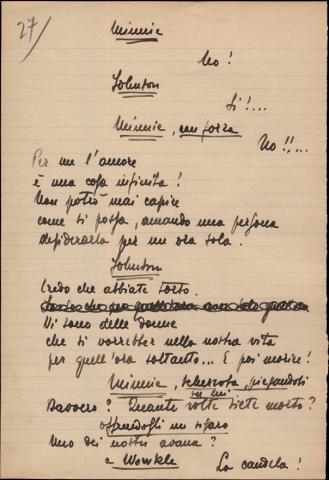 27/
Minnie
No!
Johnson
Si!...
Minnie, con forza
No!!...
Per me l'amore
è una cosa infinita!
Non potrò mai capire
come si possa, amando una persona
desiderarla per un'ora sola.
Johnson
Credo che abbiate torto.
Vi sono delle donne
che si vorrebber nella nostra vita
per quell'ora soltanto... E poi morire!
Minnie, scherzosa, piegandosi
su lui
Davvero? Quante volte siete morto?
offrendogli un sigaro
Uno dei nostri avana?
a Wowkle
La candela!